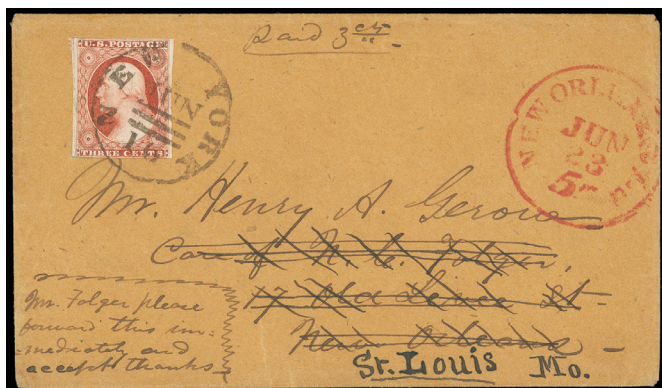 Paid 3 cts
U.S. POSTAGE
THREE CENTS
NEW YORK
JUN
NEW ORLEANS
JUN
23
5
Mr. Henry A. Gerow
Care of N. C. Folger,
17 Old Levee St.
New Orleans
St. Louis Mo.
Mr. Folger please
forward this im=
=mediately and
accept thanks